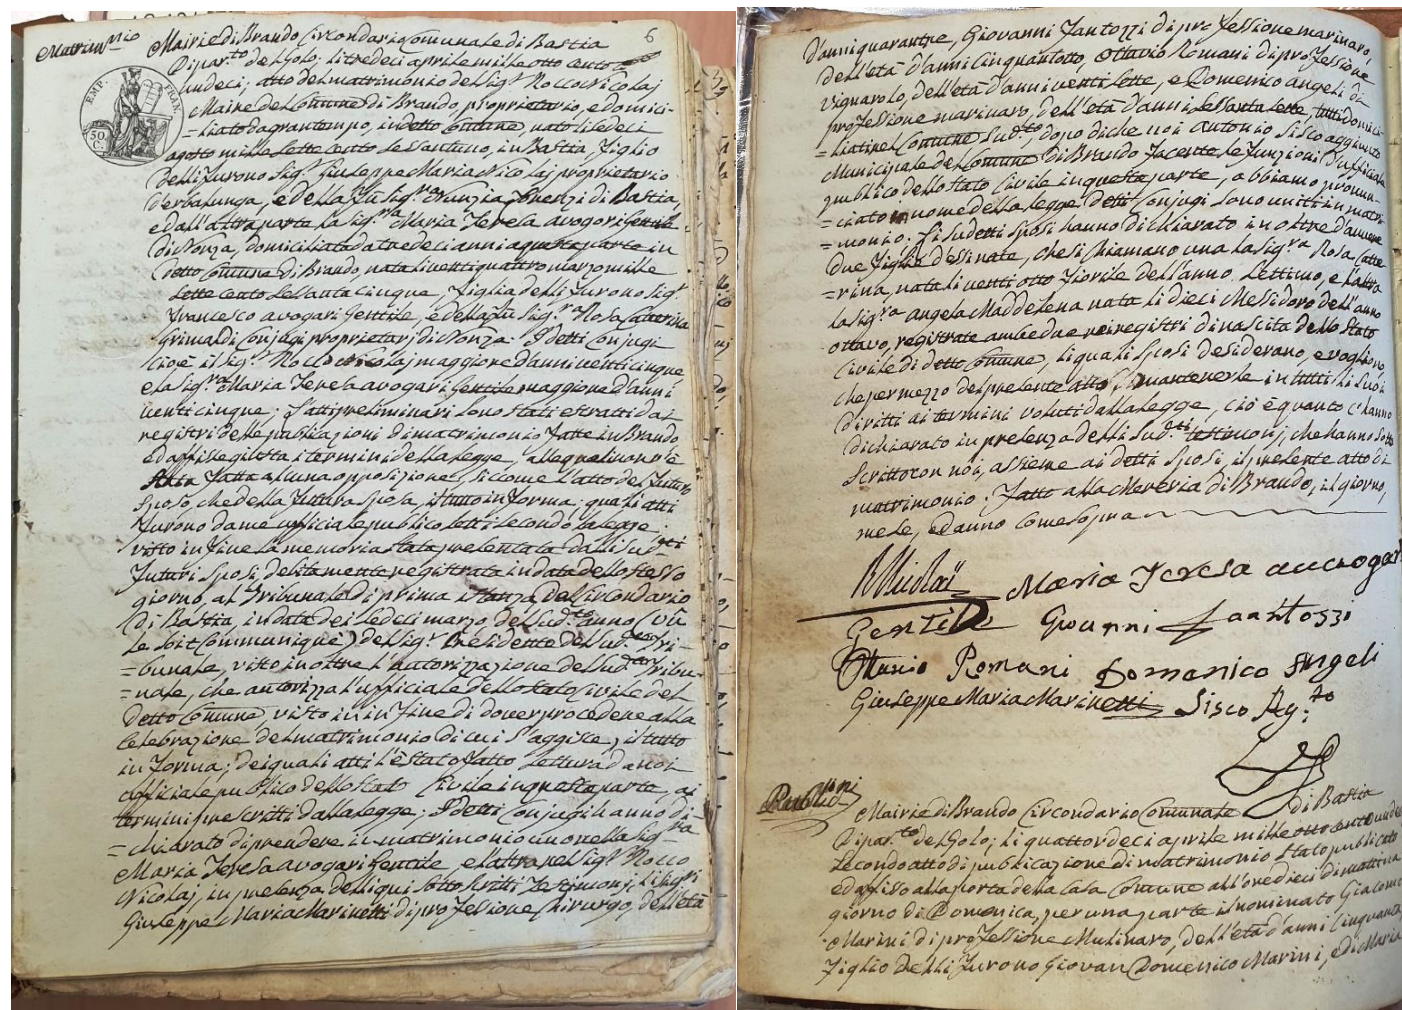 Matrim.nio
6
Mairie di Brando Circondario Comunale di Bastia
Dipar.to del Golo; li tredeci aprile mille otto cento
undeci; atto del matrimonio del Sig.r Rocco Nicolaj
Maire del Comune di Brando, proprietario, e domici-
=liato da gran tempo, in detto Comune, nato li sedeci
agosto mille sette cento sessantuno, in Bastia, figlio
delli furono Sig.r Giuseppe Maria Nicolaj proprietario
d'erbalunga, e della fu Sig.ra Orunzia Lorenzi di Bastia,
e dall'altra parte la Sig.ra Maria Teresa avogari Gentile
di Nonza, domiciliata da tredeci anni a questa parte in
detto Comune di Brando, nata li venti quattro marzo mille
sette cento sessanta cinque, figlia delli furono Sig.r
Francesco avogari Gentile, e della fu Sig.ra Rosa Catterina
Grimaldi Conjugi proprietarj di Nonza. I detti Conjugi
cioè il Sig.r Rocco Nicolaj maggiore d'anni venti cinque
e la Sig.ra Maria Teresa avogari Gentile maggiore d'anni
venti cinque; gl'atti preliminari sono stati estratti dai
registri delle publicazioni di matrimonio fatte in Brando
ed affisse giusta i termini della legge, alle quali non è
stata fatta alcuna opposizione, siccome l'atto del futuro
Sposo, che della futura Sposa, il tutto in forma; quali atti
furono da me ufficiale publico letti secondo la legge;
visto in fine la memoria stata presentata dalli Sud.tti
futuri Sposi, debitamente registrata in data dello stesso
giorno, al Tribunale di prima istanza del Circondario
di Bastia, in data dei sedeci marzo, del Sud.tto anno (vû
le soit Communiqué) del Sig.r Presidente del Sud.tto Tri-
=bunale, visto inoltre l'autorizazione del Sud.tto Tribu-
=nale, che autorizza l'ufficiale dello stato Civile del
detto Comune, visto in in fine di dover procedere alla
celebrazione del matrimonio di cui s'aggisce, il tutto
in forma; dei quali atti l'è stato fatto lettura da noi
ufficiale publico dello stato Civile in questa parte, ai
termini prescritti dalla legge; I detti Conjugi hanno di-
=chiarato di prendere in matrimonio uno nella Sig.ra
Maria Teresa avogari Gentile e l'altra nel Sig.r Rocco
Nicolaj, in presenza delli qui sotto scritti Testimonj, li Sig.ri
Giuseppe Maria Marinetti di professione Chirurgo, dell'età
EMP. FRAN.
50 C.
d'anni quarantre, Giovanni Fantozzi di professione marinaro,
dell'età d'anni Cinquantotto, Ottavio Romani di professione
vignarolo, dell'età d'anni venti sette, e Domenico angeli di
professione marinaro, dell'età d'anni sessanta sette, tutti domici-
=liati nel Comune Sud.tto, dopo di che noi Antonio Sisco aggiunto
Municipale del Comune di Brando facente le funzioni d'ufficiale
publico dello stato Civile in questa parte, abbiamo pronun-
=ciato in nome della legge detti Conjugi sono uniti in matri-
=monio; gli Sudetti Sposi hanno dichiarato in oltre d'avere
due figlie d'essi nate, che si chiamano una la Sig.ra Rosa Catte-
=rina, nata li venti otto, Fiorile dell'anno settimo, e l'altra
la Sig.ra Angela Maddalena nata li dieci Messidoro dell'anno
ottavo, registrate ambedue nei registri di nascita dello stato
Civile di detto Comune, li quali Sposi desiderano, e vogliono,
che per mezzo del presente atto di mantenerle in tutti li suoi
diritti ai termini voluti dalla legge, ciò è quanto c'hanno
dichiarato in presenza delli Sud.tti testimonj, che hanno sotto
scritto con noi, assieme ai detti Sposi, il presente atto di
matrimonio. Fatto alla Meria di Brando, il giorno,
mese, ed anno come sopra
RNicolaj
Maria Teresa auuogari
Gentile
Giouanni Faantozzi
Ottauio Romani
Domenico Angeli
Giuseppe Maria Marinetti
Sisco Ag.to
Publica.ni
Mairie di Brando Circondario Comunale di Bastia
Dipar.to del Golo; li quattordeci aprile mille otto cento undeci
secondo atto di publicazione di matrimonio stato publicato
ed affisso alla porta della Casa Comune all'ore dieci di mattina
giorno di Domenica, per una parte il nominato Giacomo
Marini di professione Mulinaro, dell'età d'anni Cinquanta
figlio delli furono Giovan Domenico Marini, e di Maria